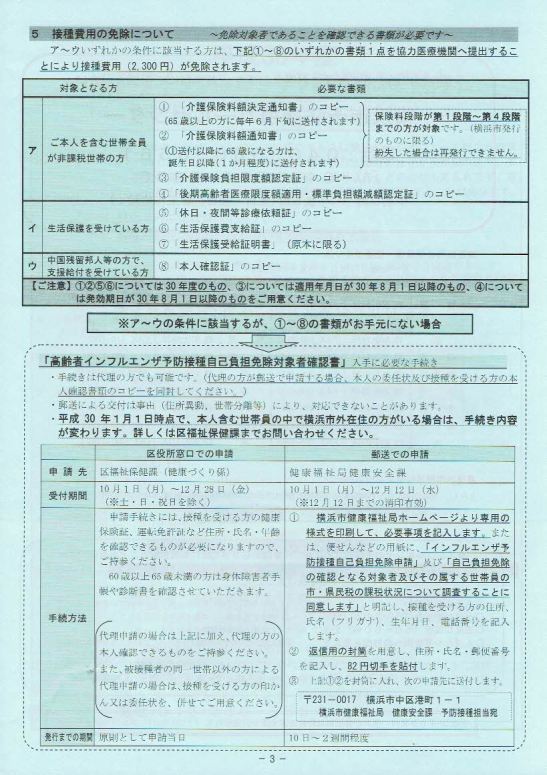 5 接種費用の免除について ～免除対象者であることを確認できる書類が必要です～
ア～ウいずれかの条件に該当する方は、下記①～⑧のいずれかの書類1点を協力医療機関へ提出するこ
とにより接種費用（2,300円）が免除されます。
対象となる方
必要な書類
ア
ご本人を含む世帯全員
が非課税世帯の方
① 「介護保険料額決定通知書」のコピー
(65歳以上の方に毎年6月下旬に送付されます)
② 「介護保険料額通知書」のコピー
(①送付以降に65歳になる方は、
誕生日以降(1か月程度)に送付されます)
保険料段階が第1段階～第4段階
までの方が対象です。（横浜市発行
のものに限る）
紛失した場合は再発行できません。
③「介護保険負担限度額認定証」のコピー
④「後期高齢者医療限度額適用・標準負担額減額認定証」のコピー
イ
生活保護を受けている方
⑤「休日・夜間等診療依頼証」のコピー
⑥「生活保護費支給証」のコピー
⑦「生活保護受給証明書」（原本に限る）
ウ
中国残留邦人等の方で、
支援給付を受けている方
⑧「本人確認証」のコピー
【ご注意】①②⑤⑥については30年度のもの、③については適用年月日が30年8月1日以降のもの、④について
は発効期日が30年8月1日以降のものをご用意ください。
※ア～ウの条件に該当するが、①～⑧の書類がお手元にない場合
「高齢者インフルエンザ予防接種自己負担免除対象者確認書」入手に必要な手続き
・手続きは代理の方でも可能です。（代理の方が郵送で申請する場合、本人の委任状及び接種を受ける方の本
人確認書類のコピーを同封してください。）
・郵送による交付は事由（住所異動、世帯分離等）により、対応できないことがあります。
・平成30年1月1日時点で、本人含む世帯員の中で横浜市外在住の方がいる場合は、手続き内容
が変わります。詳しくは区福祉保健課までお問い合わせください。
区役所窓口での申請
郵送での申請
申請先
区福祉保健課（健康づくり係）
健康福祉局健康安全課
受付期間
10月1日（月）～12月28日（金）
（※土・日・祝日を除く）
10月1日（月）～12月12日（水）
（※12月12日までの消印有効）
手続方法
申請手続きには、接種を受ける方の健康
保険証、運転免許証など住所・氏名・年齢
を確認できるものが必要になりますので、
ご持参ください。
60歳以上65歳未満の方は身体障害者手
帳や診断書を確認させていただきます。
代理申請の場合は上記に加え、代理の方の
本人確認できるものをご持参ください。
また、被接種者の同一世帯以外の方による
代理申請の場合は、接種を受ける方の印か
ん又は委任状を、併せてご用意ください。
① 横浜市健康福祉局ホームページより専用の
様式を印刷して、必要事項を記入します。また
は、便せんなどの用紙に、「インフルエンザ予
防接種自己負担免除申請」及び「自己負担免除
の確認となる対象者及びその属する世帯員の
市・県民税の課税状況について調査することに
同意します」と明記し、接種を受ける方の住所、
氏名（フリガナ）、生年月日、電話番号を記入
します。
② 返信用の封筒を用意し、住所・氏名・郵便番号
を記入し、82円切手を貼付します。
③ 上記①②を封筒に入れ、次の申請先に送付します。
〒231－0017 横浜市中区港町1－1
横浜市健康福祉局 健康安全課 予防接種担当宛
発行までの期間
原則として申請当日
10日～2週間程度
－3－